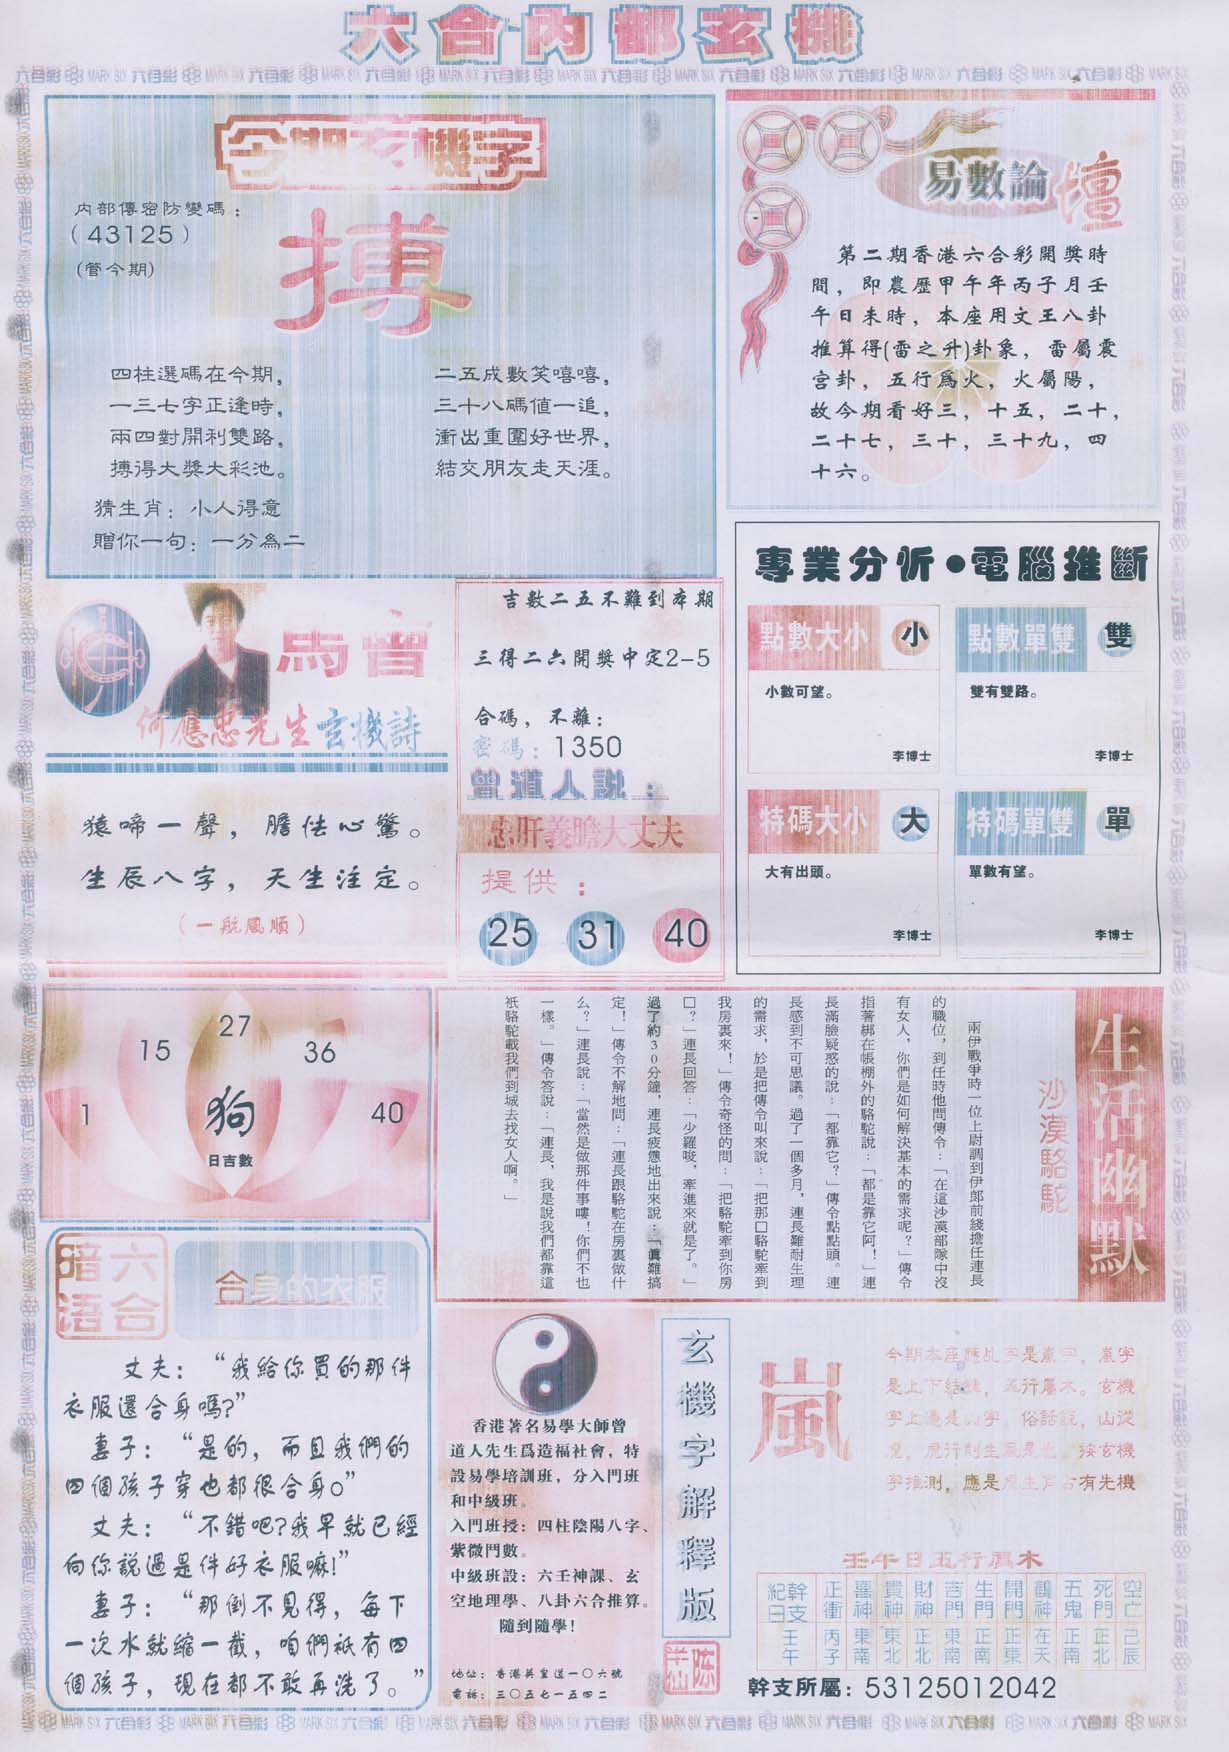 六合內部玄機
今期玄機字
內部傳密防變碼：
（43125）
(管今期)
搏
四柱選碼在今期，
一三七字正逢時，
兩四對開利雙路，
搏得大獎大彩池。
二五成數笑嘻嘻，
三十八碼值一追，
衝出重圍好世界，
結交朋友走天涯。
猜生肖：小人得意
贈你一句：一分為二
易數論壇
第二期香港六合彩開獎時
間，即農歷甲午年丙子月壬
午日未時，本座用文王八卦
推算得(雷之升)卦象，雷屬震
宮卦，五行爲火，火屬陽，
故今期看好三，十五，二十，
二十七，三十，三十九，四
十六。
馬會
何應忠先生玄機詩
猿啼一聲，膽怯心驚。
生辰八字，天生注定。
（一航風順）
吉數二五不難到本期
三得二六開獎中定2-5
合碼，不離：
密碼：1350
曾道人說：
忠肝義膽大丈夫
提供：
25 31 40
專業分析●電腦推斷
點數大小 小
小數可望。
李博士
點數單雙 雙
雙有雙路。
李博士
特碼大小 大
大有出頭。
李博士
特碼單雙 單
單數有望。
李博士
1 15 27 36 40
狗
日吉數
生活幽默
沙漠駱駝
兩伊戰爭時一位上尉調到伊郎前綫擔任連長
的職位，到任時他問傳令：「在這沙漠部隊中沒
有女人，你們是如何解決基本的需求呢？」傳令
指著綁在帳棚外的駱駝說：「都是靠它阿！」連
長滿臉疑惑的說：「都靠它？」傳令點點頭。連
長感到不可思議。過了一個多月，連長難耐生理
的需求，於是把傳令叫來說：「把那口駱駝牽到
我房裏來！」傳令奇怪的問：「把駱駝牽到你房
口？」連長回答：「少羅唆，牽進來就是了。」
過了約30分鐘，連長疲憊地出來說：「真難搞
定！」傳令不解地問：「連長跟駱駝在房裏做什
么？」連長說：「當然是做那件事嘍！你們不也
一樣。」傳令答說：「連長，我是說我們都靠這
衹駱駝載我們到城去找女人啊。」
六合暗语
合身的衣服
丈夫：“我給你買的那件
衣服還合身嗎?”
妻子：“是的，而且我們的
四個孩子穿也都很合身。”
丈夫：“不錯吧?我早就已經
向你說過是件好衣服嘛!”
妻子：“那倒不見得，每下
一次水就縮一截，咱們衹有四
個孩子，現在都不敢再洗了。”
香港著名易學大師曾
道人先生爲造福社會，特
設易學培訓班，分入門班
和中級班。
入門班授：四柱陰陽八字、
紫微門數。
中級班設：六壬神課、玄
空地理學、八卦六合推算。
隨到隨學!
地址：香港英皇道一〇六號
電話：三〇五七一五四二
玄機字解釋版
嵐
今期本座應乩字是嵐字，嵐字
是上下結構，五行屬木。玄機
字上邊是山字，俗話說，山從
虎，虎行則生風是也，按玄機
字推測，應是虎生肖占有先機
壬午日五行屬木
幹支紀日 正衝 喜神 貴神 財神 吉門 生門 開門 鶴神 五鬼 死門 空亡
壬午 丙子 東南 東北 正南 東南 正南 正東 在天 正南 正北 己辰
幹支所屬：53125012042